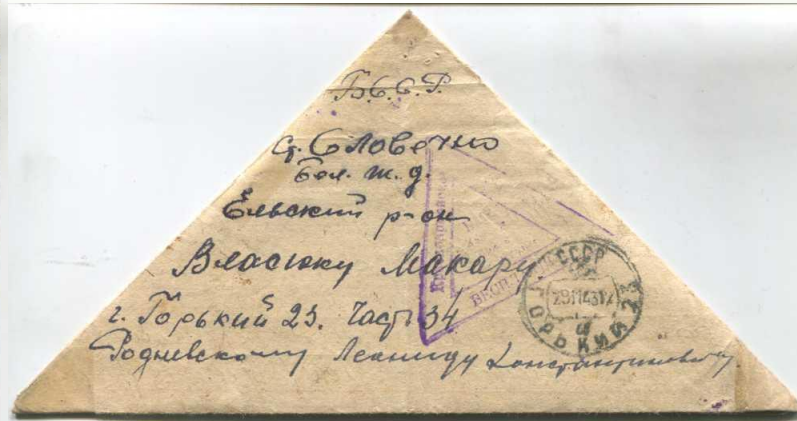 Б.С.С.Р.
ст. Словечно
Бел. ж. д.
Ельский р-он
Власюку Макару
г. Горький 23. Часть 34
Родневскому Леониду Константиновичу.
СССР
ГОРЬКИЙ 23